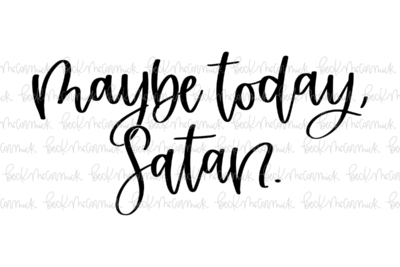 maybe today,
Satan.